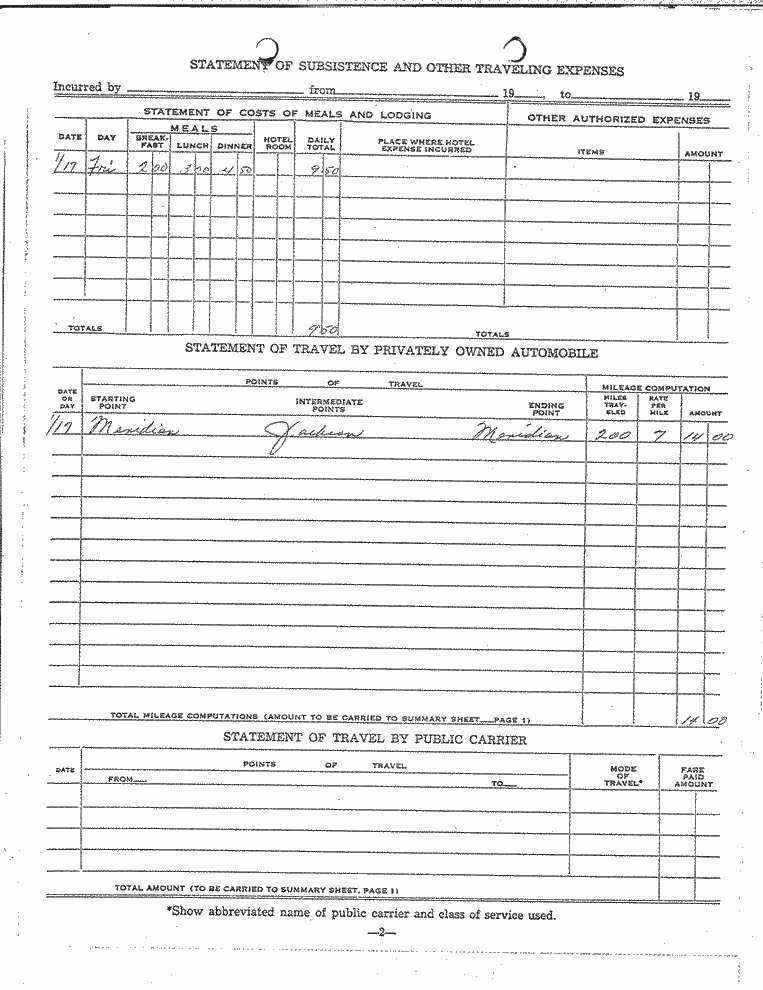 STATEMENT OF SUBSISTENCE AND OTHER TRAVELING EXPENSES
Incurred by from 19 , to 19
STATEMENT OF COSTS OF MEALS AND LODGING
OTHER AUTHORIZED EXPENSES
DATE DAY MEALS BREAK-FAST LUNCH DINNER HOTEL ROOM DAILY TOTAL PLACE WHERE HOTEL EXPENSE INCURRED ITEMS AMOUNT
1/17 Fri 2 00 3 00 4 50 9 50
TOTALS 9 50 TOTALS
STATEMENT OF TRAVEL BY PRIVATELY OWNED AUTOMOBILE
DATE OR DAY POINTS OF TRAVEL MILEAGE COMPUTATION
STARTING POINT INTERMEDIATE POINTS ENDING POINT MILES TRAV-ELED RATE PER MILE AMOUNT
1/17 Meridian Jackson Meridian 200 7 14 00
TOTAL MILEAGE COMPUTATIONS (AMOUNT TO BE CARRIED TO SUMMARY SHEET PAGE 1) 14 00
STATEMENT OF TRAVEL BY PUBLIC CARRIER
DATE POINTS OF TRAVEL MODE OF TRAVEL* FARE PAID AMOUNT
FROM TO
TOTAL AMOUNT (TO BE CARRIED TO SUMMARY SHEET, PAGE 1)
*Show abbreviated name of public carrier and class of service used.
—2—